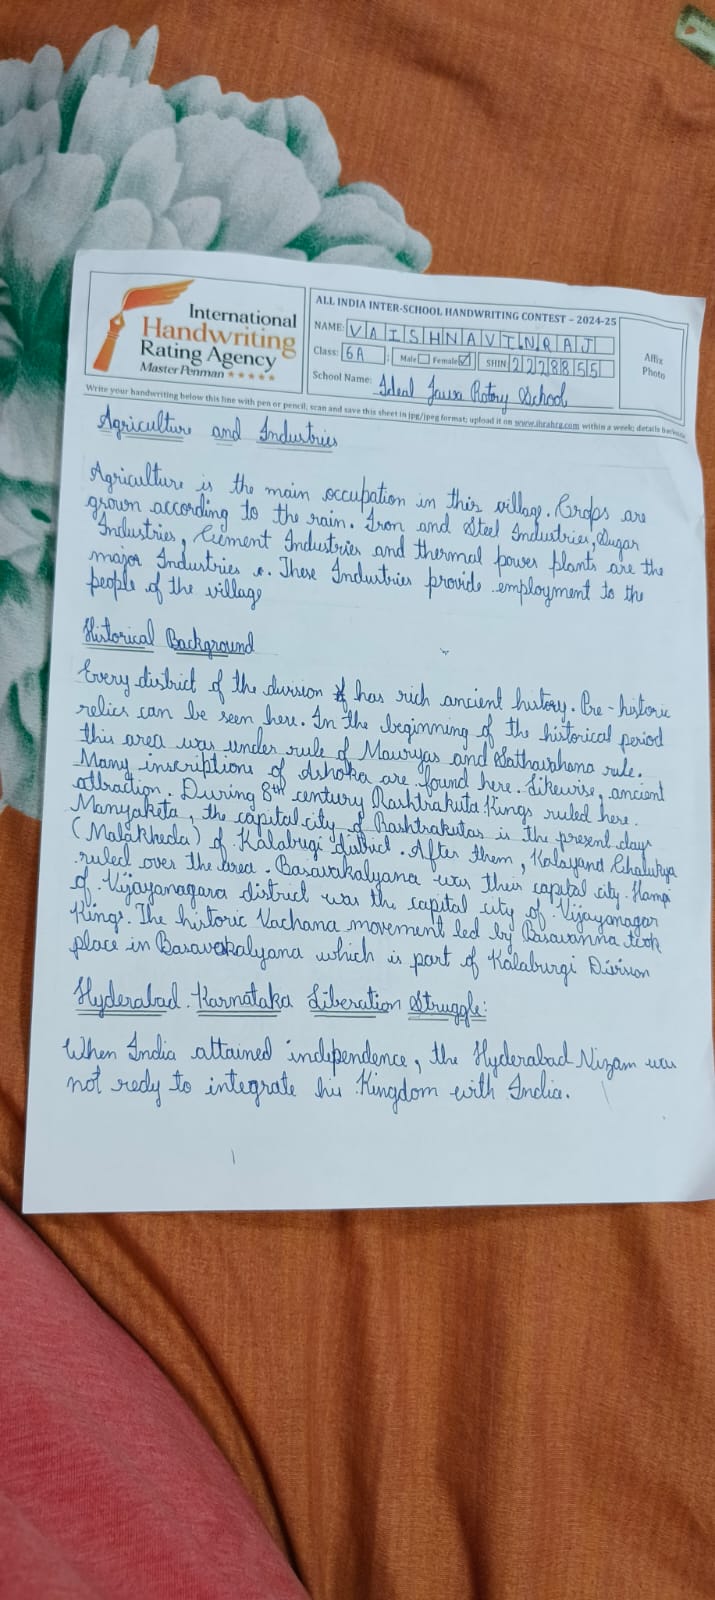 International
Handwriting
Rating Agency
Master Penman ★★★★★
ALL INDIA INTER-SCHOOL HANDWRITING CONTEST – 2024-25
NAME: VAISHNAVINRAJ
Class: 6A Male Female SHIN 2228855
School Name: Ideal Jawa Rotary School
Affix
Photo
Write your handwriting below this line with pen or pencil; scan and save this sheet in jpg/jpeg format; upload it on www.ihrahrg.com within a week; details
Agriculture and Industries
Agriculture is the main occupation in this village. Crops are
grown according to the rain. Iron and Steel Industries, Sugar
Industries, Ciement Industries and thermal power plants are the
major Industries. These Industries provide employment to the
people of the village
Historical Background
Every district of the division has rich ancient history. Pre-historic
relics can be seen here. In the beginning of the historical period
this area was under rule of Mauryas and Sathavahana rule.
Many inscriptions of Ashoka are found here. Likewise, ancient
attraction. During 8th century Rashtrakuta Kings ruled here.
Manyaketa, the capital city of Rashtrakutas is the present day
(Malakheda) of Kalabugi district. After them, Kalayand Chalukya
ruled over the area. Basavakalyana was their capital city. Hampi
of Vijayanagara district was the capital city of Vijayanagar
Kings. The historic Vachana movement led by Basavanna took
place in Basavakalyana which is part of Kalaburgi Division
Hyderabad Karnataka Liberation Struggle:
When India attained independence, the Hyderabad Nizam was
not redy to integrate his Kingdom with India.